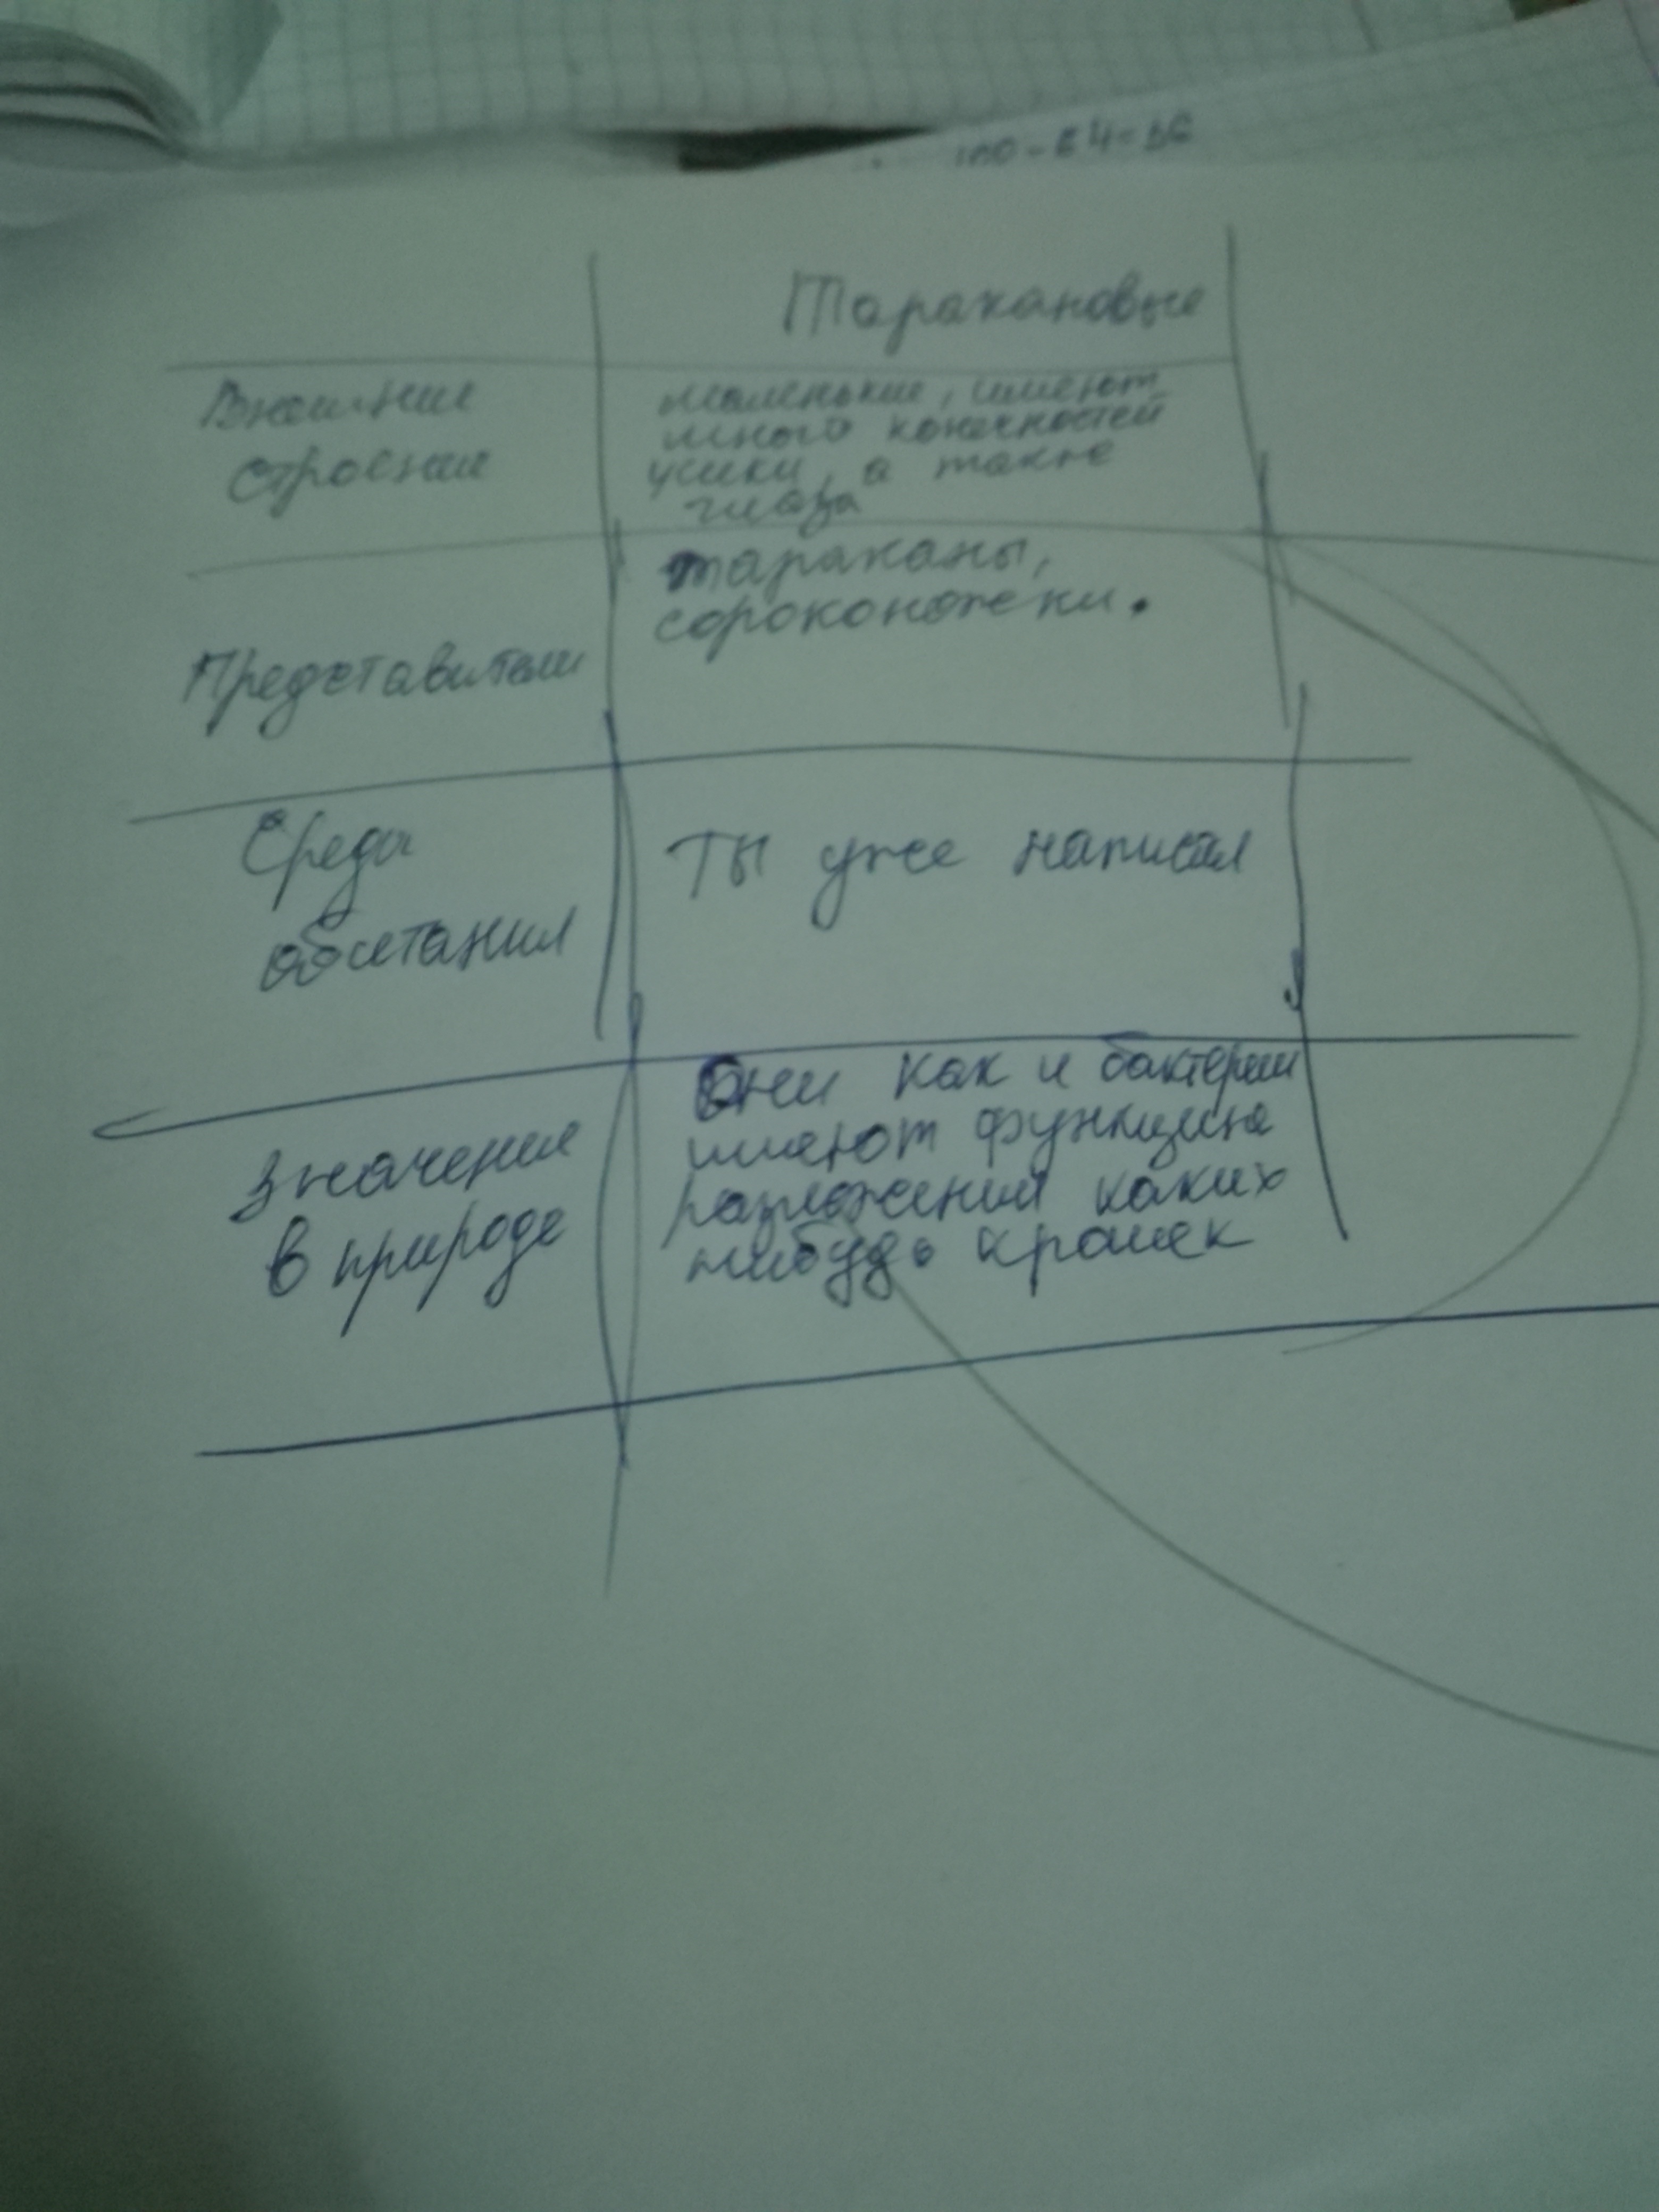 Таракановые
Внешние
строение
маленькие, имеют
много конечностей
усики, а также
глаза
Представители
тараканы,
сороконожеки.
Среда
обитания
ТЫ уже написал
Значение
в природе
Они как и бактерии
имеют функцию
разложений каких
нибудь крошек